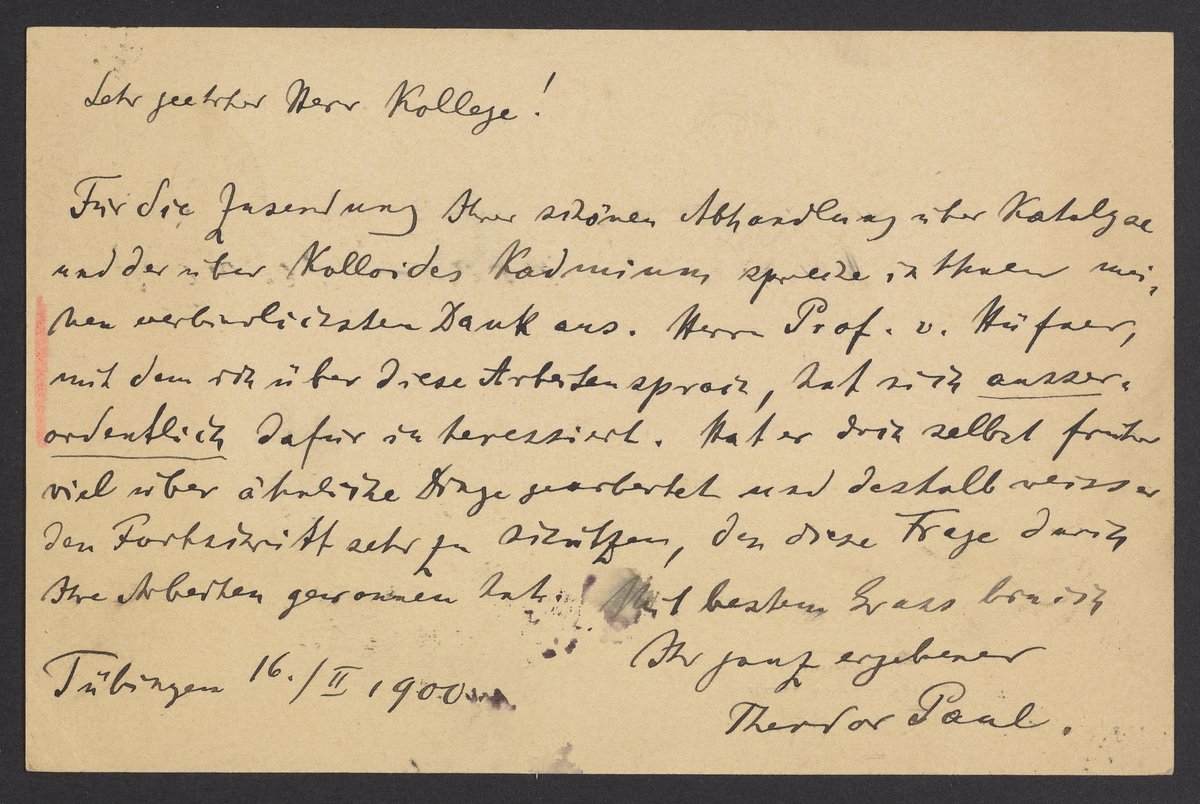 Sehr geehrter Herr Kollege!
Für die Zusendung Ihrer schönen Abhandlung über Katalyse
und der über Kolloides Kadmium spreche ich Ihnen mei-
nen verbindlichsten Dank aus. Herrn Prof. v. Hüfner,
mit dem ich über diese Arbeiten sprach, hat sich ausser-
ordentlich dafür interessiert. Hat er doch selbst früher
viel über ähnliche Dinge gearbeitet und deshalb weiss er
den Fortschritt sehr zu schätzen, den diese Frage durch
Ihre Arbeiten gewonnen hat. Mit bestem Gruss bin ich
Ihr ganz ergebener
Tübingen 16./II 1900
Theodor Paul.